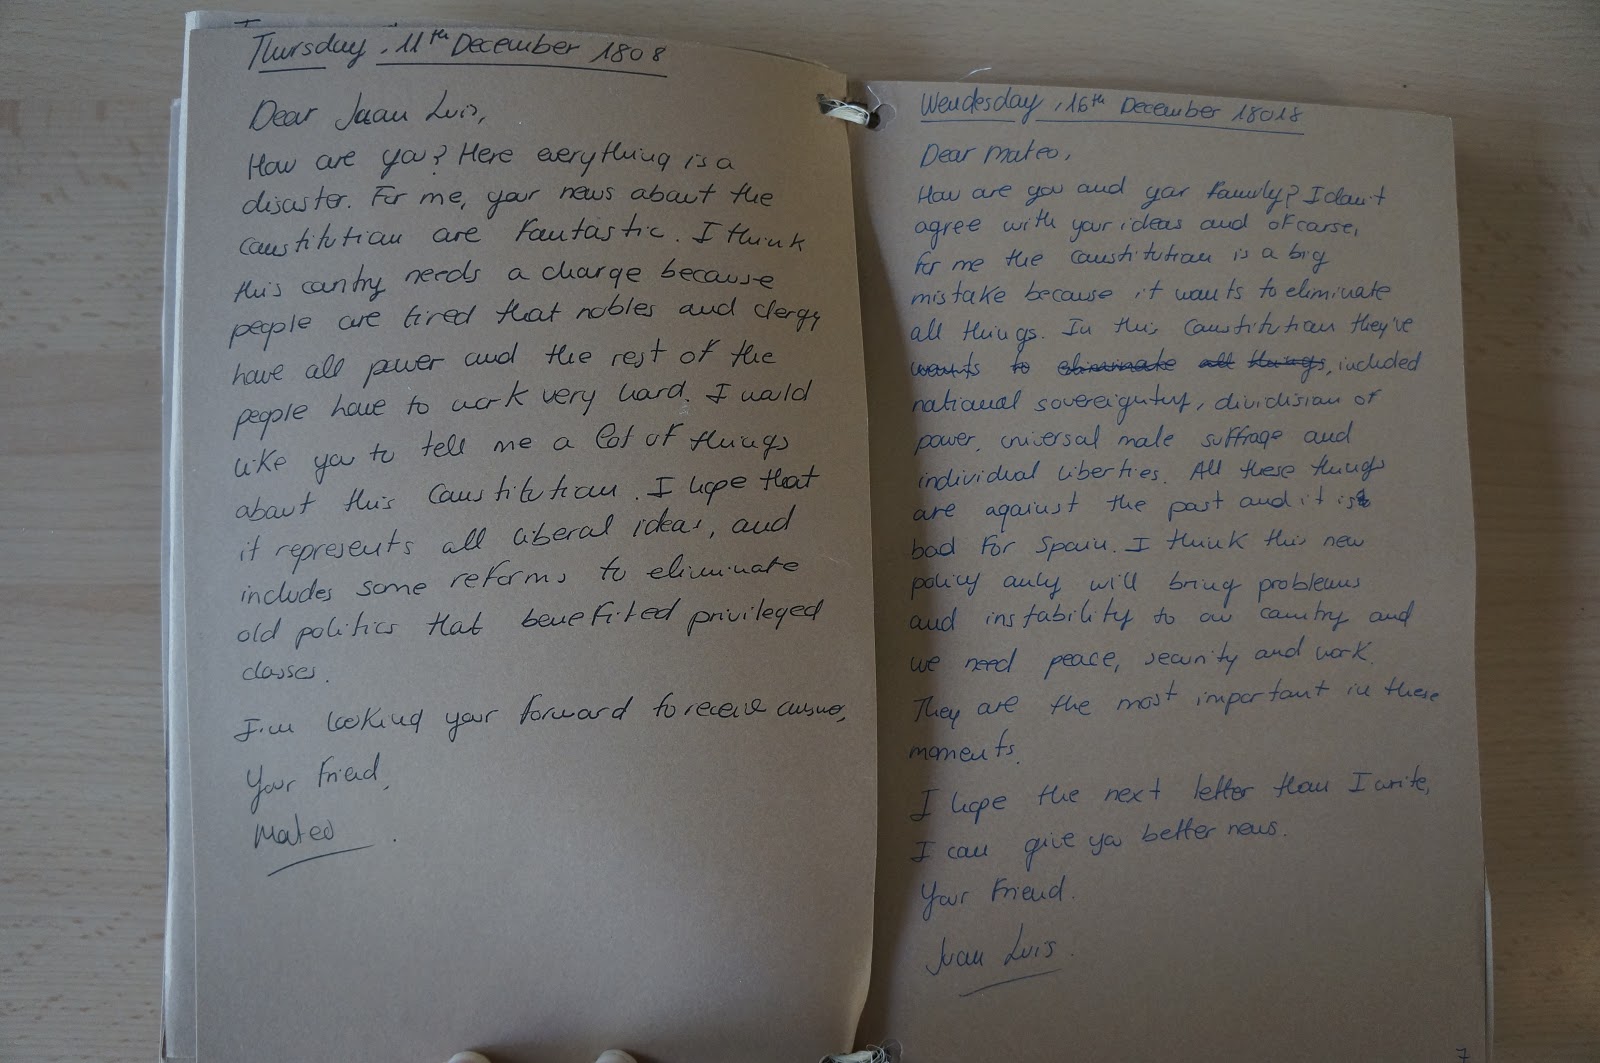 Thursday, 11th December 1808
Dear Juan Luis,
How are you? Here everything is a
disaster. For me, your news about the
constitution are fantastic. I think
this country needs a change because
people are tired that nobles and clergy
have all power and the rest of the
people have to work very hard. I would
like you to tell me a lot of things
about this Constitution. I hope that
it represents all liberal ideas, and
includes some reforms to eliminate
old politics that benefited privileged
classes.
I'm looking your forward to receive answer,
Your friend,
Mateo.
Wendesday, 16th December 18018
Dear Mateo,
How are you and your family? I don't
agree with your ideas and of corse,
for me the Constitution is a big
mistake because it wants to eliminate
all things. In this Constitution they've
wants to eliminate all things, included
national sovereignty, dividision of
power, universal male suffrage and
individual liberties. All these things
are against the past and it is
bad for Spain. I think this new
policy only will bring problems
and instability to our country and
we need peace, security and work.
They are the most important in these
moments.
I hope the next letter than I write,
I can give you better news.
Your friend.
Juan Luis.
7